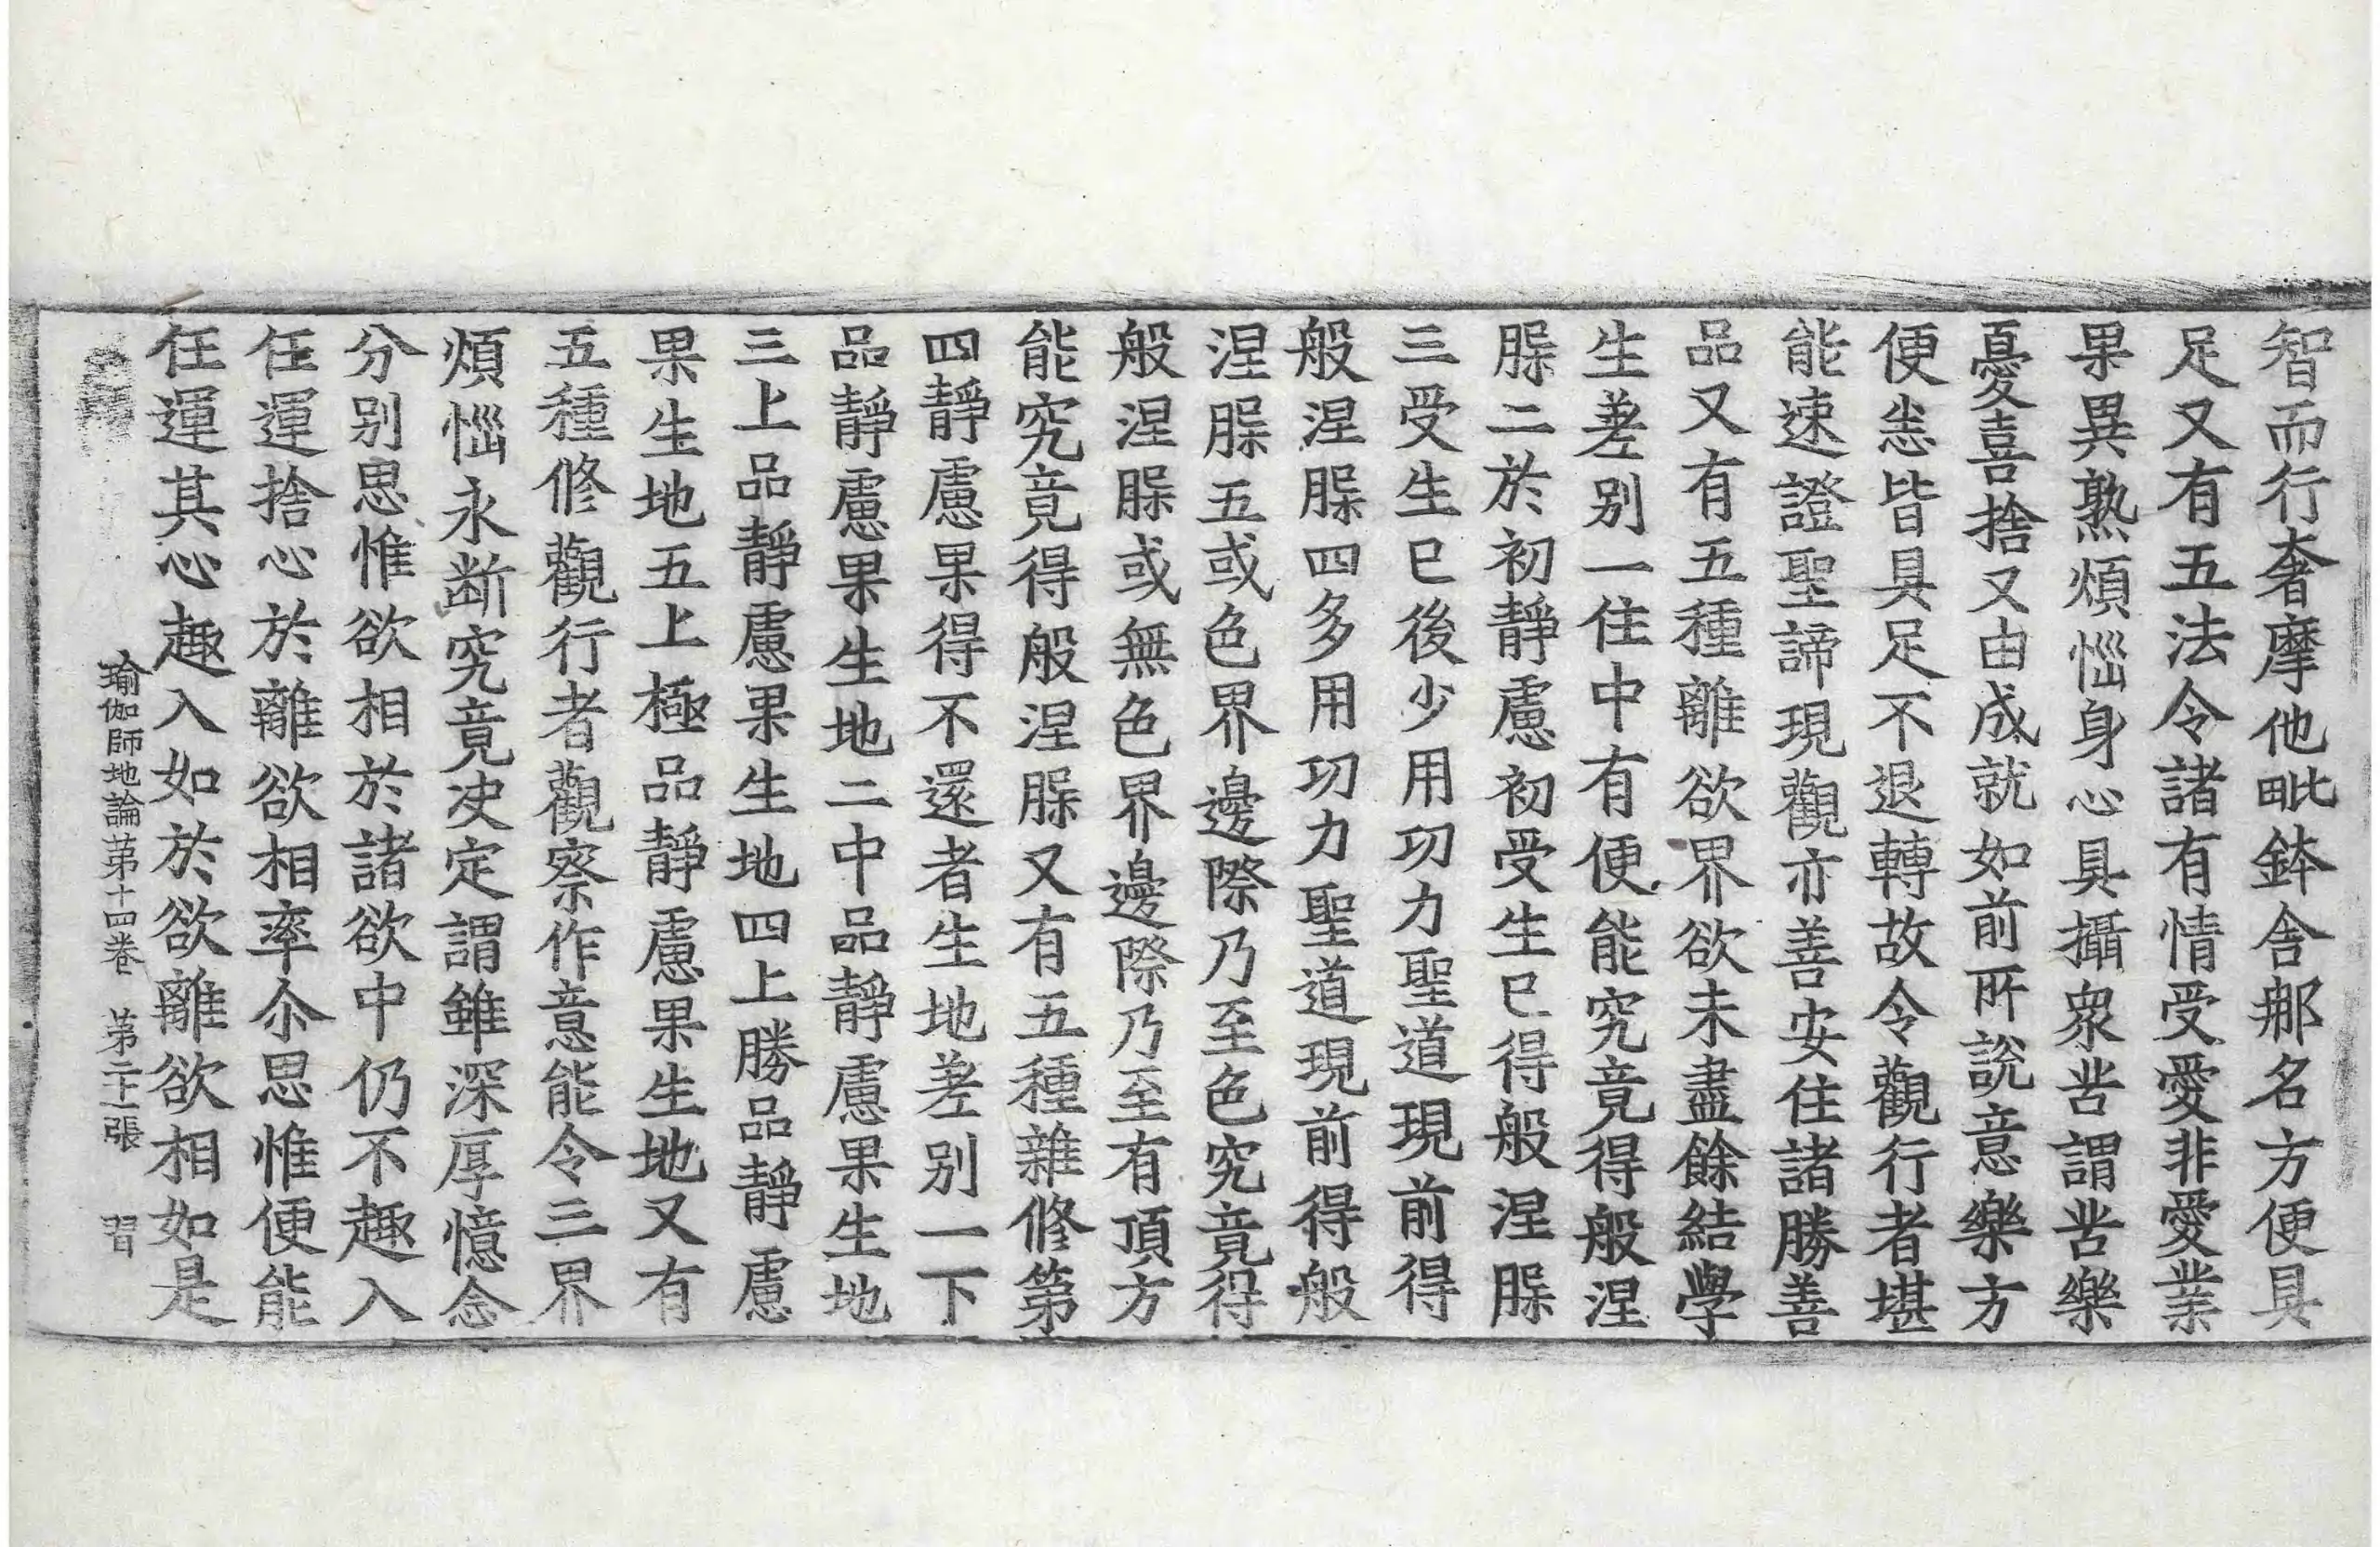 智而行奢摩他毗鉢舍那名方便具
足又有五法令諸有情受愛非愛業
果異熟煩惱身心具攝衆苦謂苦樂
憂喜捨又由成就如前所說意樂方
便恙皆具足不退轉故令觀行者堪
能速證聖諦現觀亦善安住諸勝善
品又有五種離欲界欲未盡餘結學
生差别一住中有便能究竟得般涅
脲二於初靜慮初受生已得般涅脲
三受生已後少用功力聖道現前得
般涅脲四多用功力聖道現前得般
涅脲五或色界邊際乃至色究竟得
般涅脲或無色界邊際乃至有頂方
能究竟得般涅脲又有五種雜修第
四靜慮果得不還者生地差别一下
品靜慮果生地二中品靜慮果生地
三上品靜慮果生地四上勝品靜慮
果生地五上極品靜慮果生地又有
五種修觀行者觀察作意能令三界
煩惱永断究竟决定謂雖深厚憶念
分别思惟欲相於諸欲中仍不趣入
任運捨心於離欲相率尒思惟便能
任運其心趣入如於欲離欲相如是
瑜伽師地論第十四卷 第二十一張 習